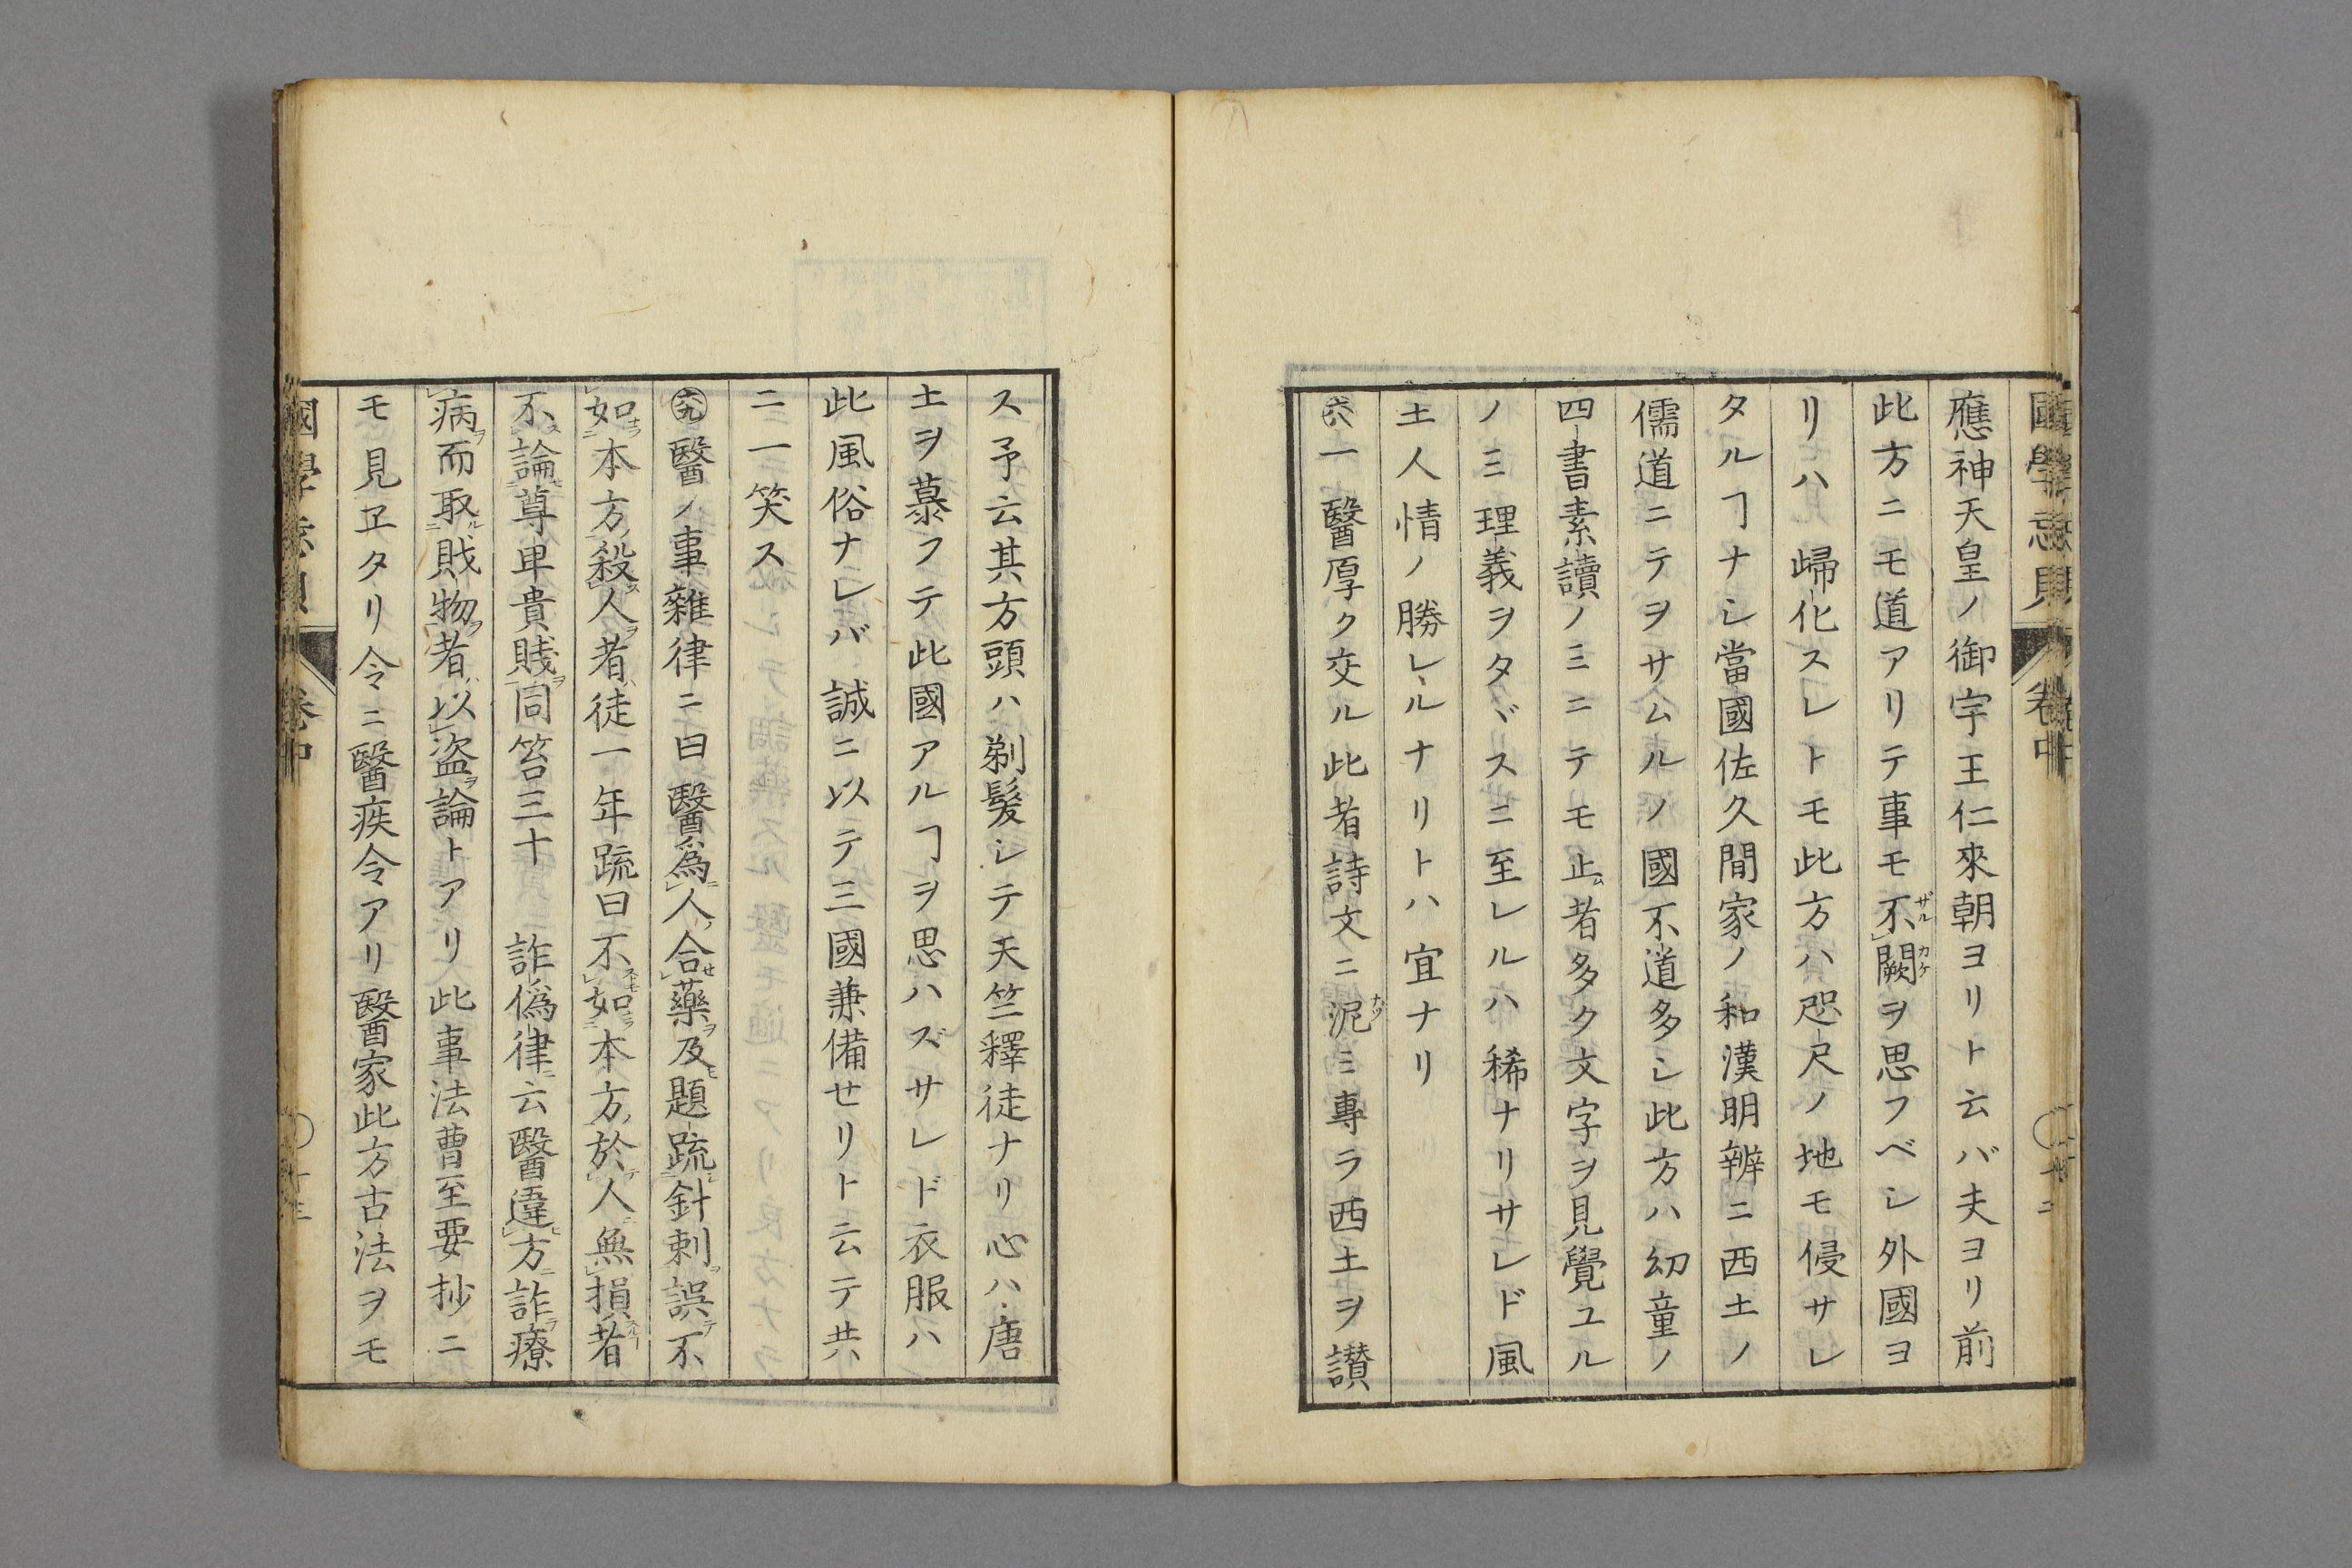 國學忘貝 卷中 十二
應神天皇ノ御宇王仁來朝ヨリト云バ夫ヨリ前
此方ニモ道アリテ事モ不闕ヲ思フベシ外國ヨ
リハ歸化スレトモ此方ハ咫尺ノ地モ侵サレ
タルヿナシ當國佐久間家ノ和漢明辨ニ西土ノ
儒道ニテヲサムルノ國不道多シ此方ハ幼童ノ
四書素讀ノミニテモ止者多ク文字ヲ見覺ユル
ノミ理義ヲタヾスニ至レルハ稀ナリサレド風
土人情ノ勝レルナリトハ宜ナリ
六八一醫厚ク交ル此者詩文ニ泥ミ專ラ西土ヲ讃
ス予云其方頭ハ剃髮シテ天竺釋徒ナリ心ハ唐
土ヲ慕フテ此國アルヿヲ思ハズサレド衣服ハ
此風俗ナレバ誠ニ以テ三國兼備せリト云テ共
ニ一笑ス
六九醫ノ事雜律ニ曰醫爲人合藥及題疏針刺誤不
如本方殺人者徒一年疏曰不如本方於人無損者
不論尊卑貴賤同笞三十 詐僞律云醫違方詐療
病而取財物者以盜論トアリ此事法曹至要抄ニ
モ見ヱタリ令ニ醫疾令アリ醫家此方古法ヲモ
國學忘貝 卷中 十三